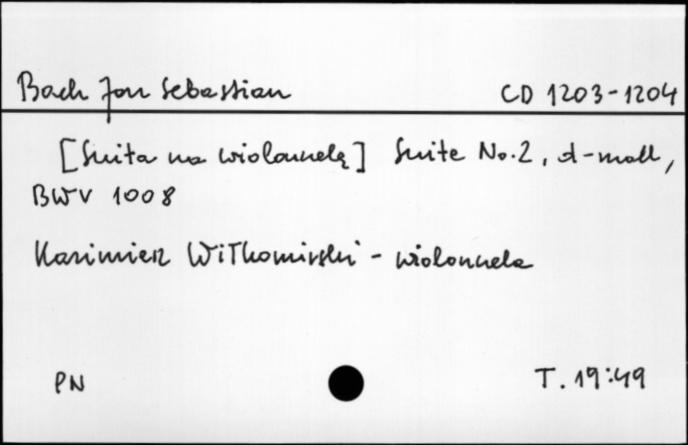 Bach Jan Sebastian CD 1203-1204
[Suita na wiolonczelę] Suite No. 2, d-moll,
BWV 1008
Kazimierz Wiłkomirski - wiolonczela
PN T. 19:49